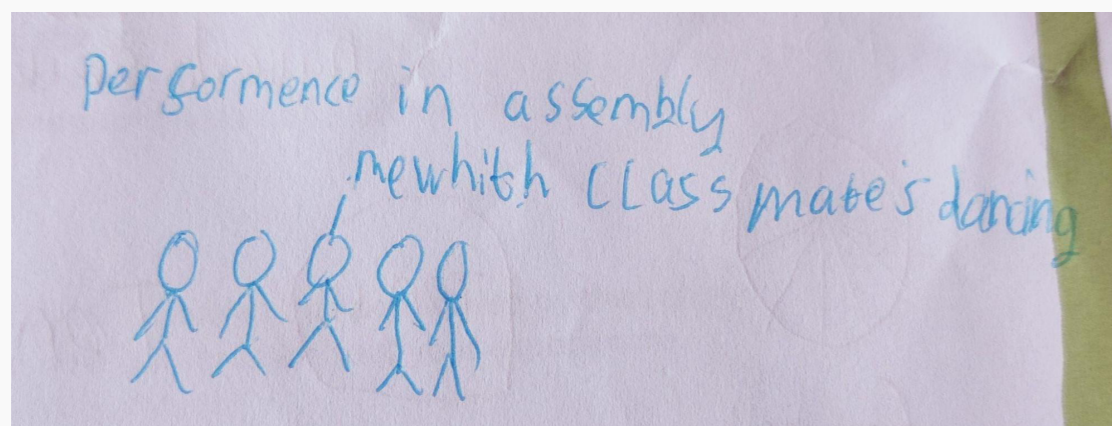 performence in assembly
me whith class mate's dancing